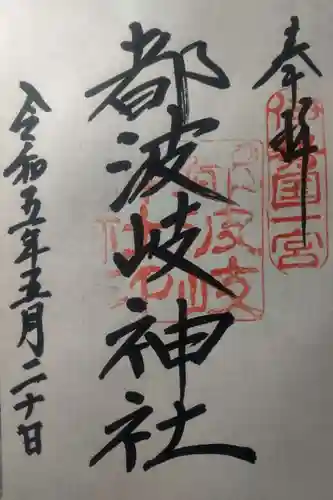 奉拝
伊勢國一宮
都波岐神社
令和五年五月二十日